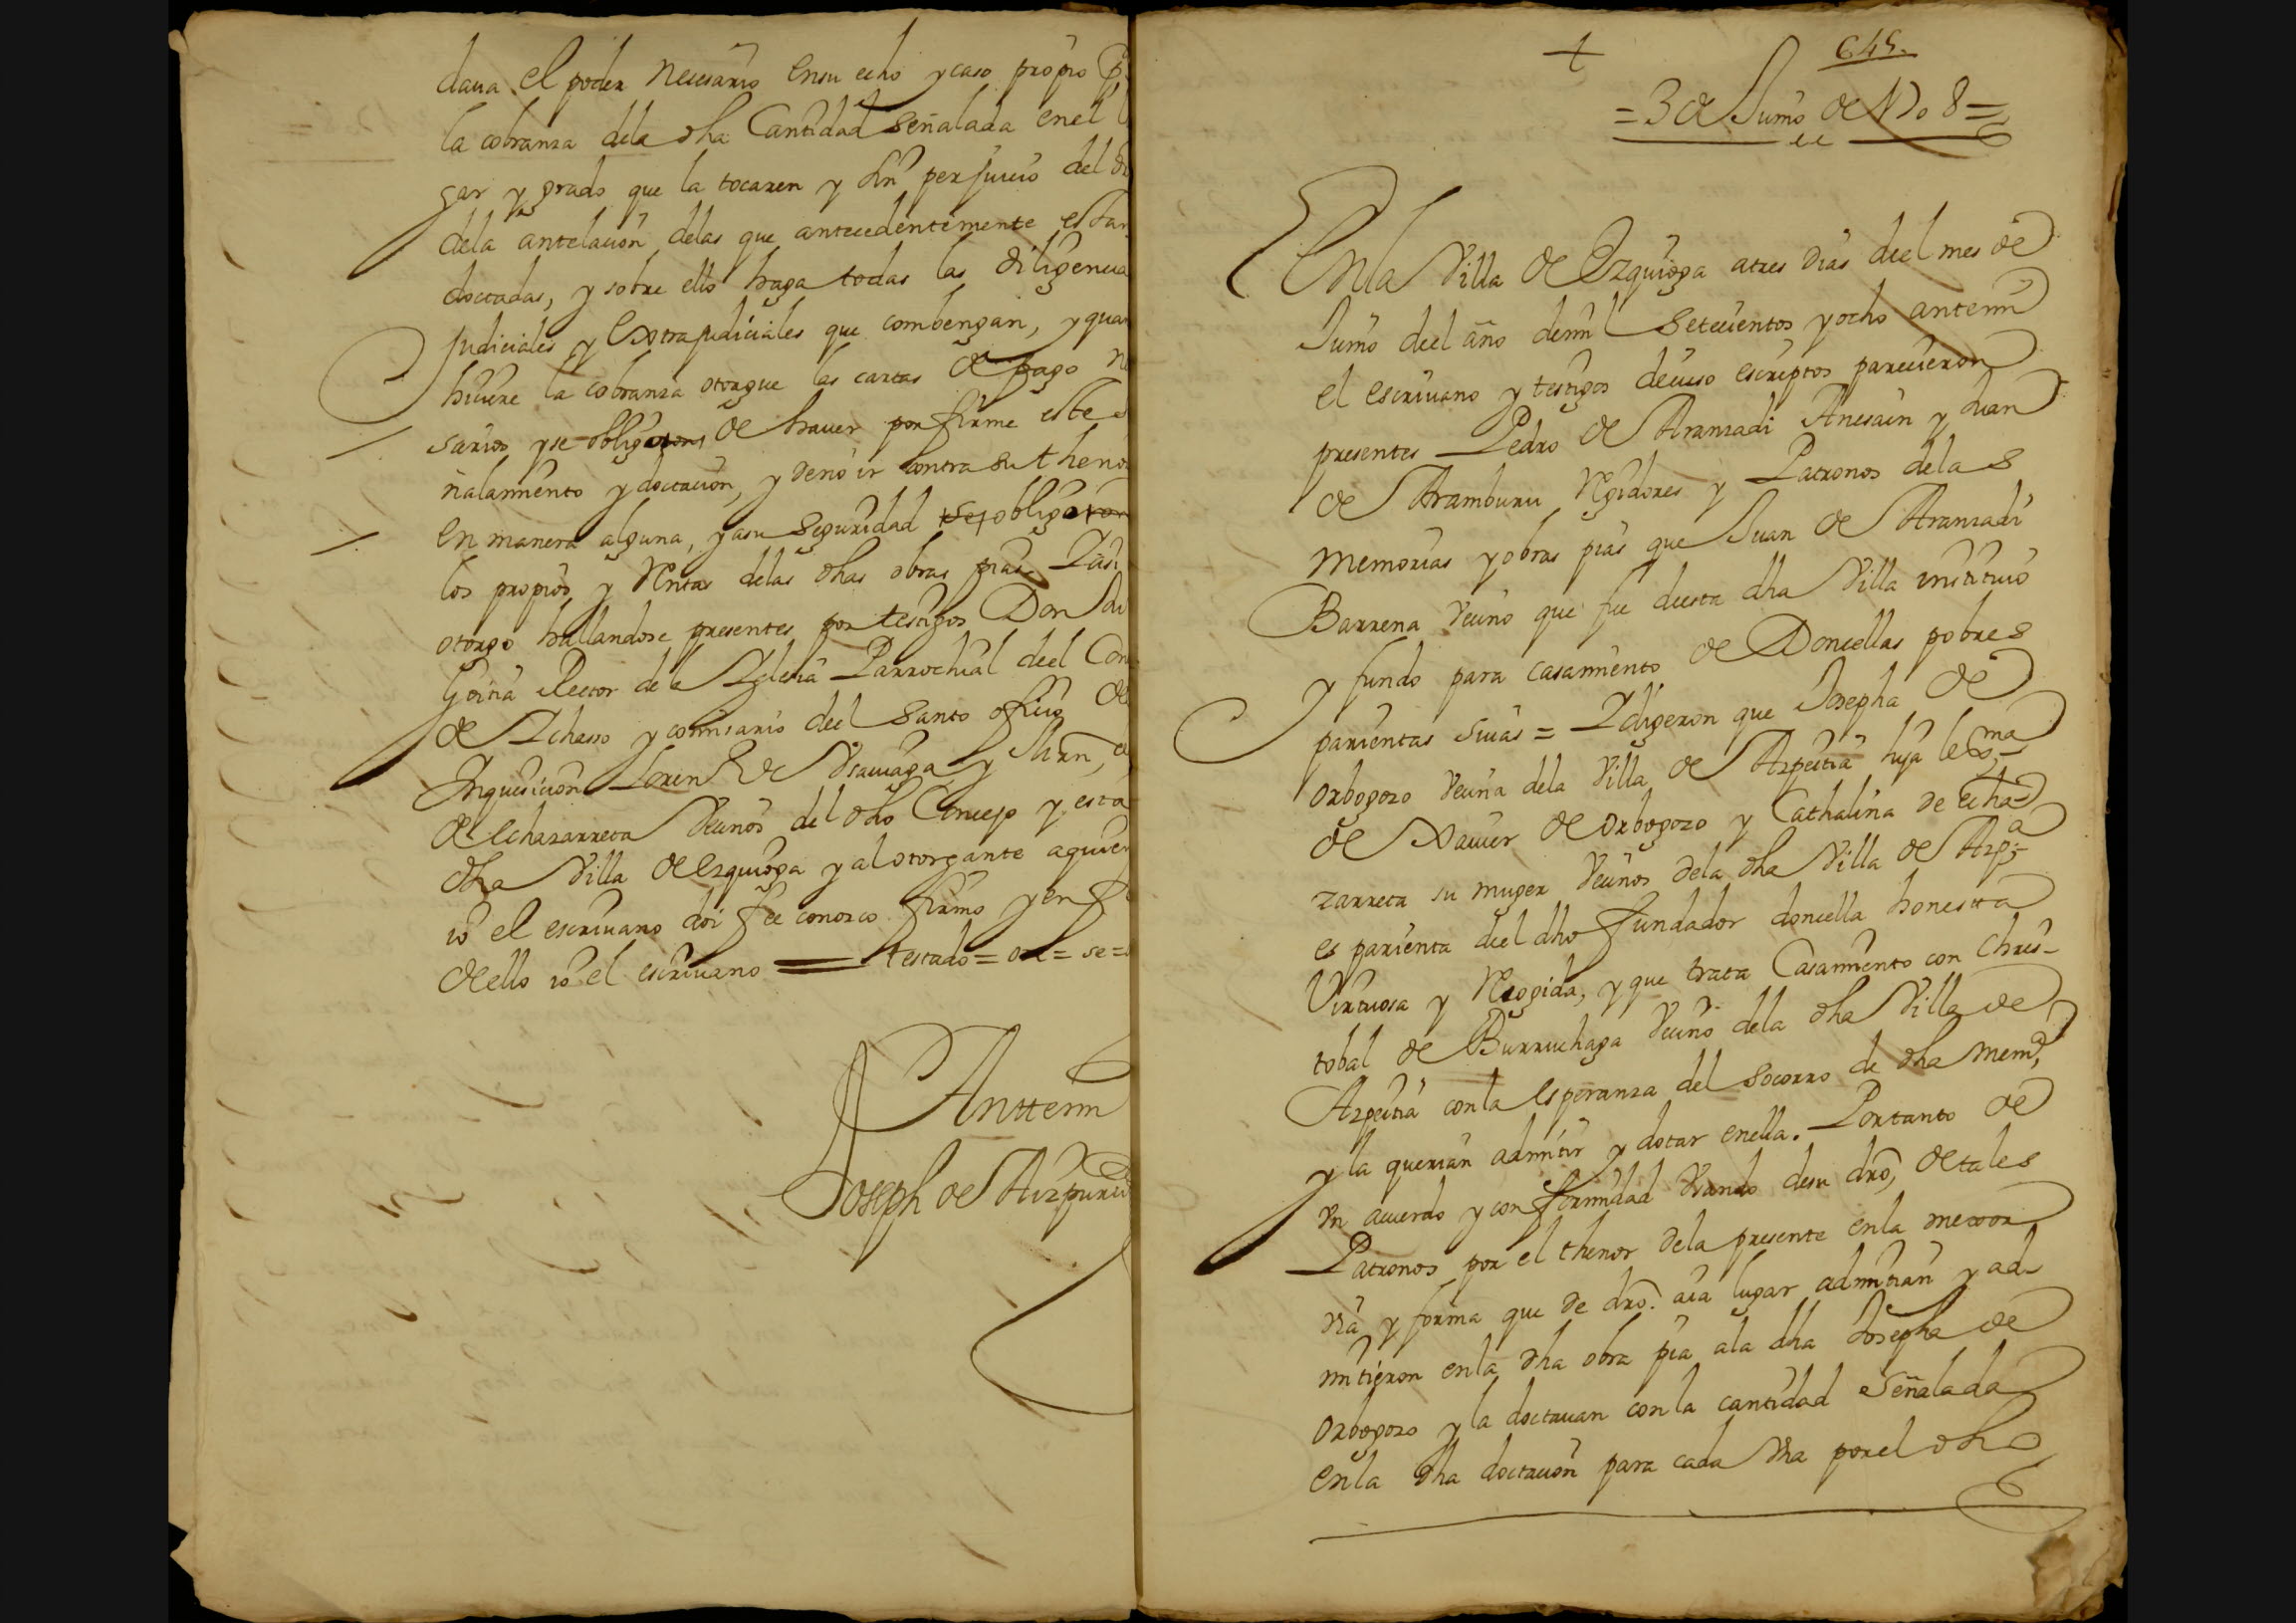 daua el poder necesario en su echo y caso propio p
la cobranza dela dha Cantidad señalada en el l
gar y grado que la tocaren y sin perjuicio del d
dela antelacion delas que antecedentemente estan
doctadas, y sobre ello haga todas las diligencia
judiciales y Extrajudiciales que combengan, y quan
hiciere la cobranza otorgue las cartas de pago ne
sarios, y se obligaron, de hauer por firme este s
ñalamiento y doctacion, y de no ir contra su theno
en manera alguna, y a su seguridad se obligaron
los propios y Rentas delas dhas obras pias Y asi
otorgo hallandose presentes por testigos Don
Goitia Rector dela Yglesia Parrochial deel Con
de Ychasso y comisario deel Santo oficio de
Ynquisicion Loren de Vsauiaga y
de echazarreta Vecinos del dho Concejo y esta
dha Villa de ezquioga y al otorgante aquien
io el escriuano doi fee conozco firmo y en f
de ello io el escriuano = testado = on = se =
Anttemi
Joseph de Aizpuru
645.
= 3 de Junio de 1708 =
En la Villa de Ezquioga atres dias deel mes de
Junio deel año de mil Setecientos y ocho antemi
el escriuano y testigos deiuso escriptos parecieron
presentes Pedro de Aranzadi Anesain y Juan
de Aramburu Regidores y Patronos delas
Memorias y obras pias que Juan de Aranzadi
Barrena Vecino que fue deesta dha Villa instituio
y fundo para casamiento de Doncellas pobres
parientas suias = Y digeron que Josepha de
orbegozo Vecina dela Villa de Azpeitia hija legma
de Xauier de orbegozo y Cathalina de echa=
zarreta su muger Vecinos dela dha Villa de Azpa
es parienta deel dho fundador doncella honesta
Virtuosa y Recogida, y que trata Casamiento con Chris-
tobal de Burruchaga Vecino dela dha Villa de
Azpeitia con la esperanza del socorro de dha mema,
y la querian admitir y dotar en ella. Portanto de
vn acuerdo y conformidad Vsando desu dro, de tales
Patronos por el thenor dela presente en la mexor
via y forma que de dro. aia lugar admitian y ad-
mitieron en la dha obra pia ala dha Josepha de
orbegozo y la doctauan con la cantidad señalada
en la dha doctacion para cada Vna por el dho